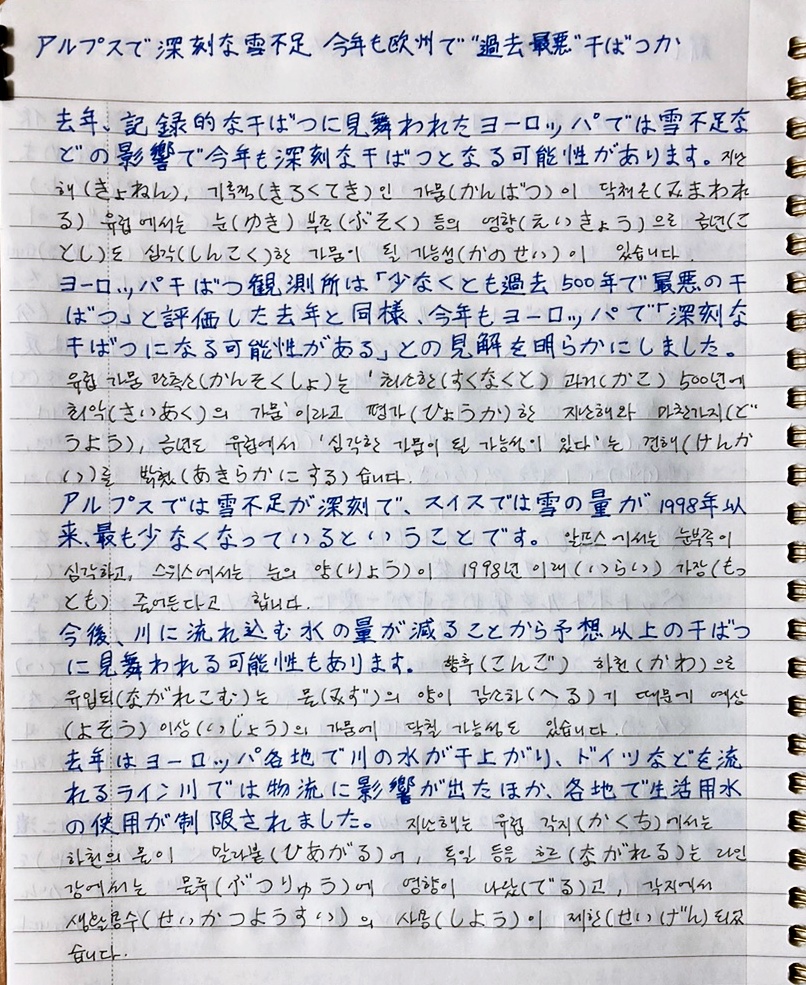 アルプスで深刻な雪不足 今年も欧州で"過去最悪"干ばつか
去年、記録的な干ばつに見舞われたヨーロッパでは雪不足な
どの影響で今年も深刻な干ばつとなる可能性があります。지난
해(きょねん), 기록적(きろくてき)인 가뭄(かんばつ)이 닥쳐온(みまわれ
る) 유럽에서는 눈(ゆき) 부족(ぶそく) 등의 영향(えいきょう)으로 금년(こ
とし)도 심각(しんこく)한 가뭄이 될 가능성(かのせい)이 있습니다.
ヨーロッパ干ばつ観測所は「少なくとも過去500年で最悪の干
ばつ」と評価した去年と同様、今年もヨーロッパで「深刻な
干ばつになる可能性がある」との見解を明らかにしました。
유럽 가뭄 관측소(かんそくしょ)는 '최소한(すくなくと) 과거(かこ) 500년에
최악(さいあく)의 가뭄'이라고 평가(ひょうか)한 지난해와 마찬가지(ど
うよう), 금년도 유럽에서 '심각한 가뭄이 될 가능성이 있다'는 견해(けんか
い)를 밝혔(あきらかにする)습니다.
アルプスでは雪不足が深刻で、スイスでは雪の量が1998年以
来、最も少なくなっているということです。 알프스에서는 눈부족이
심각하고, 스위스에서는 눈의 양(りょう)이 1998년 이래(いらい) 가장(もっ
とも) 줄어든다고 합니다.
今後、川に流れ込む水の量が減ることから予想以上の干ばつ
に見舞われる可能性もあります。 향후(こんご) 하천(かわ)으로
유입되(ながれこむ)는 물(みず)의 양이 감소하(へる)기 때문에 예상
(よそう) 이상(いじょう)의 가뭄에 닥칠 가능성도 있습니다.
去年はヨーロッパ各地で川の水が干上がり、ドイツなどを流
れるライン川では物流に影響が出たほか、各地で生活用水
の使用が制限されました。 지난해는 유럽 각지(かくち)에서는
하천의 물이 말라붙(ひあがる)어, 독일 등을 흐르(ながれる)는 라인
강에서는 물류(ぶつりゅう)에 영향이 나왔(でる)고, 각지에서
생활용수(せいかつようすい)의 사용(しよう)이 제한(せいげん)되었
습니다.